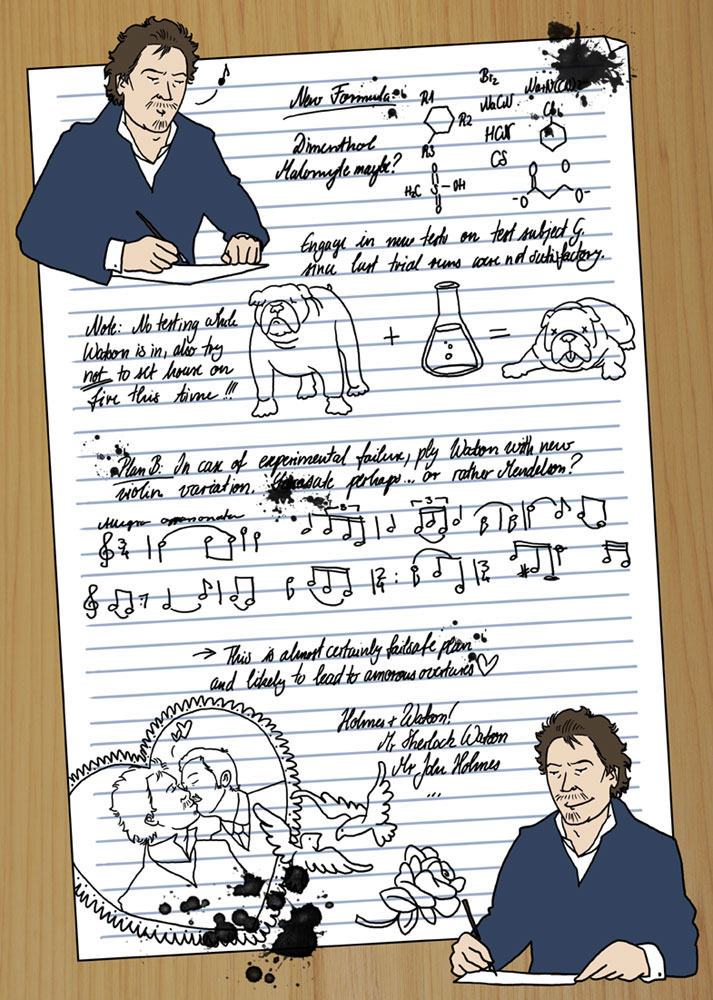 New Formula:
R1
R2
R3
Br2
NaCN
HCN
CS
Dimenthol
Malomyte maybe?
O
H3C S OH
O
O O
-O O-
Engage in new tests on test subject G.
since last trial runs were not satisfactory.
Note: No testing while
Watson is in, also try
not to set house on
fire this time!!!
+ =
Plan B: In case of experimental failure, ply Watson with new
violin variation. Sarasate perhaps... or rather Mendelson?
Allegro
3 3
3/4
2/4 3/4
→ This is almost certainly failsafe plan
and likely to lead to amorous overtures ♡
Holmes + Watson!
Mr Sherlock Watson
Mr John Holmes
...